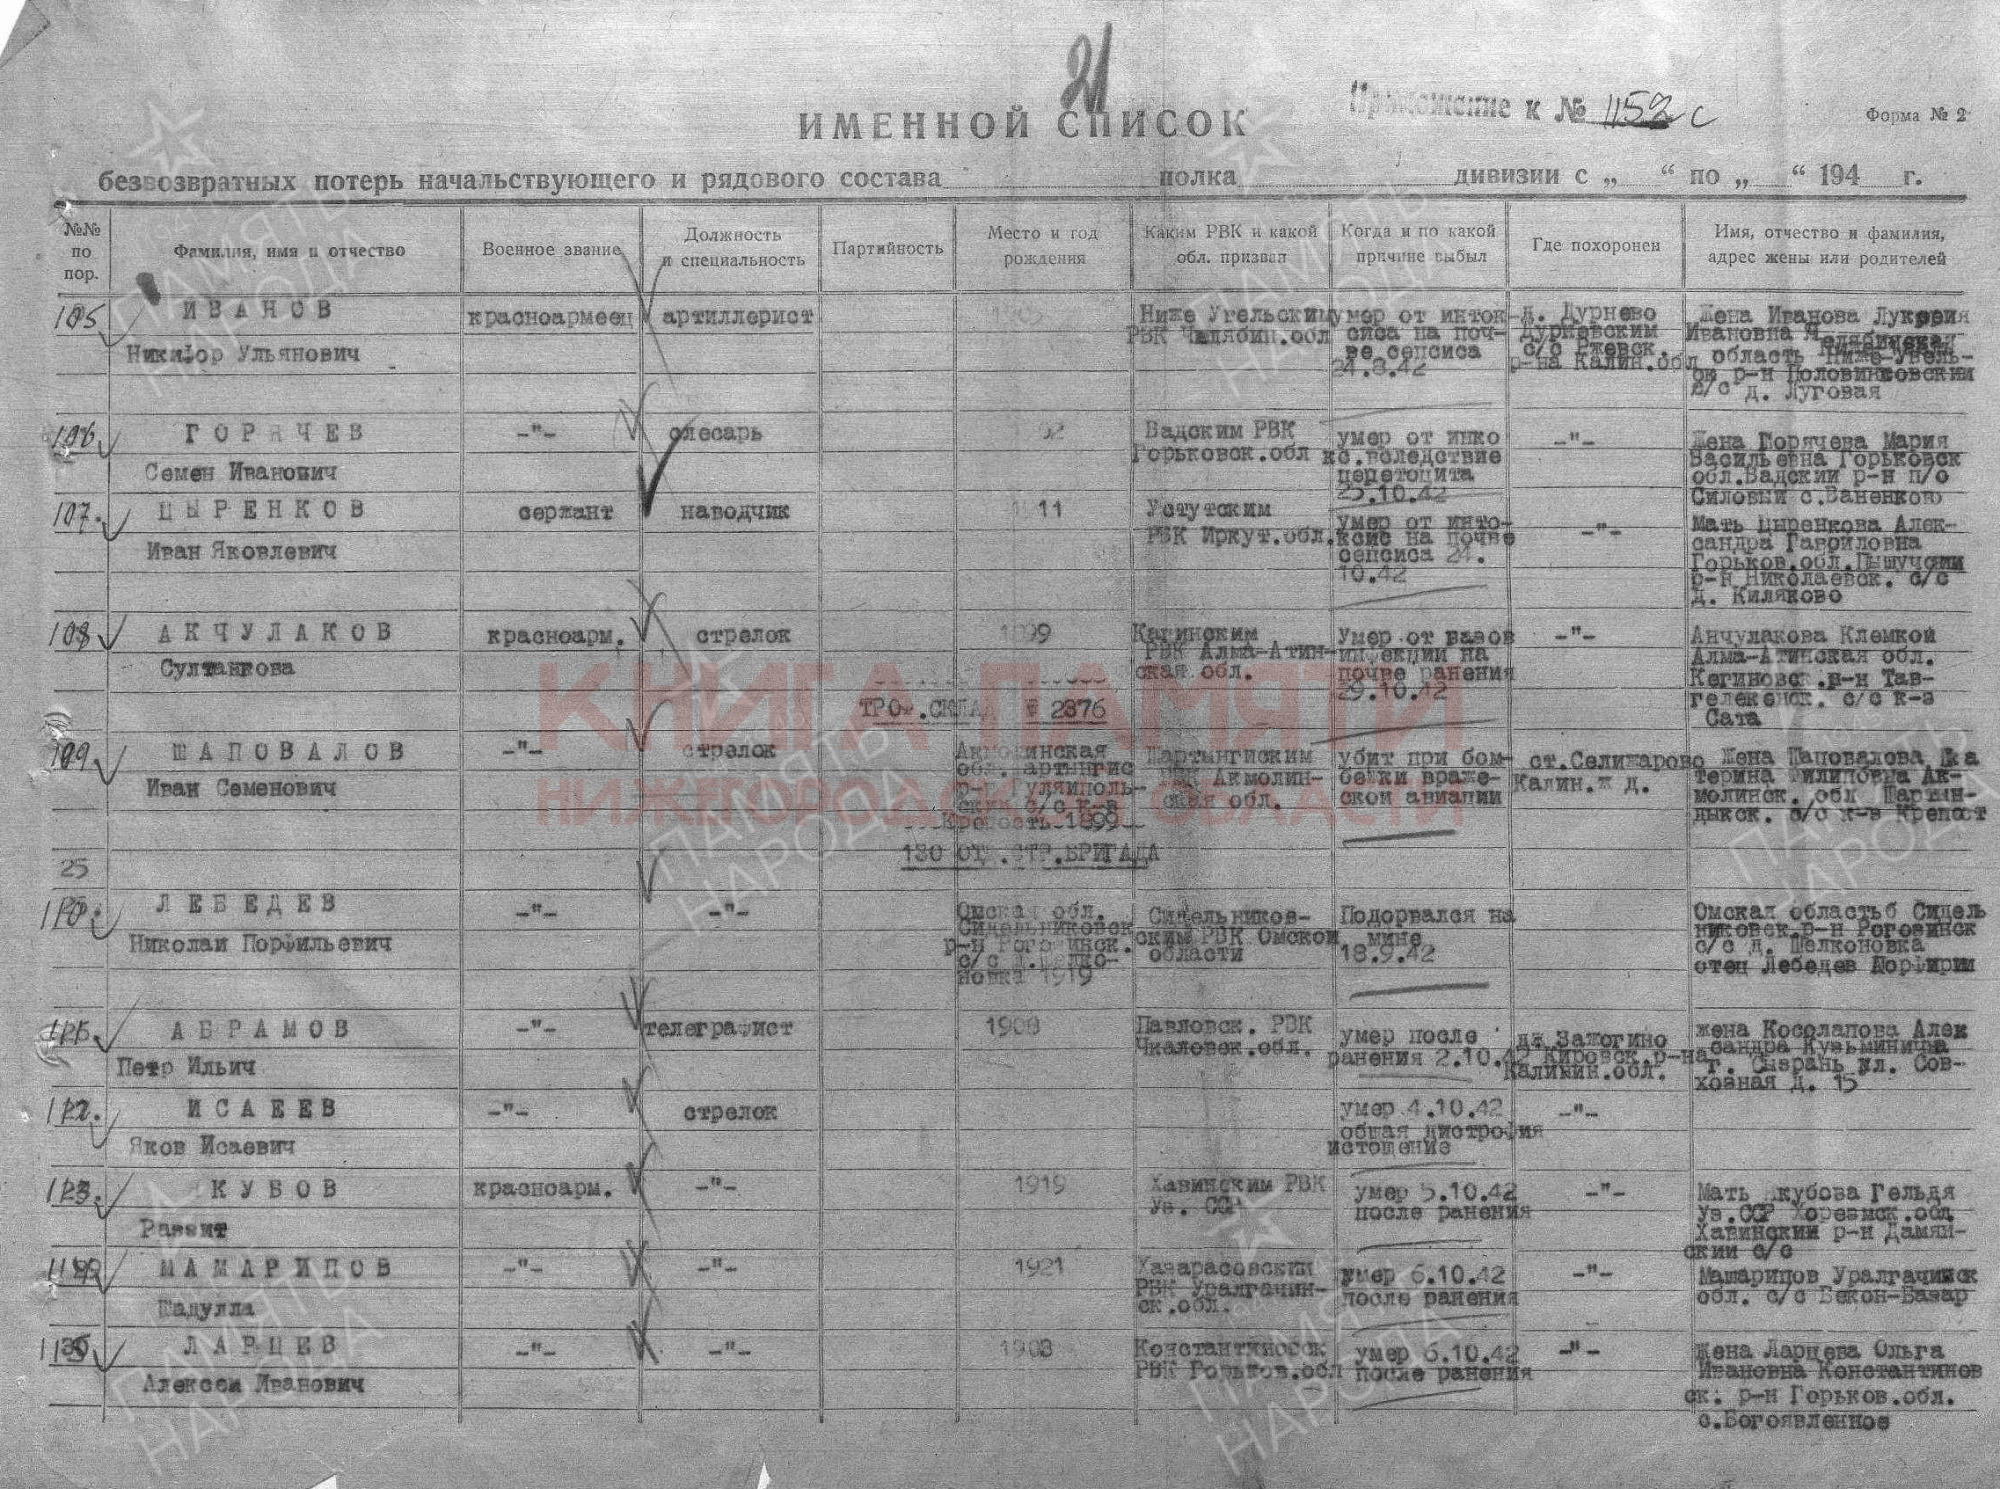 21
ИМЕННОЙ СПИСОК
Приложение к № 1152с
Форма № 2
безвозвратных потерь начальствующего и рядового состава полка дивизии с „ “ по „ “ 194 г.
№№ по пор.
Фамилия, имя и отчество
Военное звание
Должность и специальность
Партийность
Место и год рождения
Каким РВК и какой обл. призван
Когда и по какой причине выбыл
Где похоронен
Имя, отчество и фамилия, адрес жены или родителей
105
ИВАНОВ
Никифор Ульянович
красноармеец
артиллерист
Ниже Угельским
РВК Челябин.обл
умер от инток-
сиса на поч-
ве сепсиса
24.8.42
д. Дурнево
Дурневским
с/с Ржевск.
р-на Калин.обл
Жена Иванова Лукерия
Ивановна Челябинская
область Ниже-Увель-
ой р-н Половинсовский
с/с д. Луговая
106
ГОРЯЧЕВ
Семен Иванович
-"-
слесарь
Вадским РВК
Горьковск.обл
умер от инко
кс.вследствие
перетоцита
25.10.42
-"-
Жена Горячева Мария
Васильевна Горьковск
обл.Вадский р-н п/о
Силовый с.Ваненкою
107.
ЦЫРЕНКОВ
Иван Яковлевич
сержант
наводчик
11
Устутским
РВК Иркут.обл.
умер от инто-
ксис на почве
сепсиса 24.
10.42
-"-
Мать Цыренкова Алек-
сандра Гавриловна
Горьков.обл.
р-н Николаевск. с/с
д. Киляково
108
АКЧУЛАКОВ
Султанкова
красноарм.
стрелок
1899
Кегинским
РВК Алма-Атин-
ская обл.
Умер от газов
инфекции на
почве ранения
29.10.42
-"-
Анчулакова Клемкой
Алма-Атинская обл.
Кегиновск.р-н Тав-
гелекенск. с/с к-з
Сата
ТРОФ.СКЛАД № 2376
109
ШАПОВАЛОВ
Иван Семенович
-"-
стрелок
Акмолинская
обл. артынгис
р-н Гуляиполь-
ский с/с к-в
Крепость 1899
Шартынгиским
РВК Акмолин-
ская обл.
убит при бом-
бежки враже-
ской авиации
ст.Селижарово
Калин.ж д.
Жена Шаповалова Ека
терина Филиповна Ак-
молинск. обл Шартын-
дыкск. с/с к-в Крепост
130 ОТД.СТР.БРИГАДА
25
110.
ЛЕБЕДЕВ
Николай Порфильевич
-"-
-"-
Омская обл.
Сидельниковск
р-н Роговинск.
с/с д.Щелко-
новка 1919
Сидельников-
ским РВК Омской
области
Подорвался на
мине
18.9.42
Омская областьб Сидель
никовск.р-н Роговинск
с/с д. Шелконовка
отец Лебедев Порфирий
111
АБРАМОВ
Петр Ильич
-"-
телеграфист
1908
Павловск. РВК
Чкаловск.обл.
умер после
ранения 2.10.42
дж Зажогино
Кировск.р-на
Калинин.обл.
жена Косолапова Алек
сандра Кузьминична
г. Сызрань ул. Сов-
хозная д. 15
112.
ИСАЕЕВ
Яков Исаевич
-"-
стрелок
умер 4.10.42
общая дистрофия
истощение
-"-
113.
КУБОВ
Развит
красноарм.
-"-
1919
Хавинским РВК
Уз. ССР
умер 5.10.42
после ранения
-"-
Мать Якубова Гельдя
Уз.ССР Хорезмск.обл
Хавинский р-н Дамян-
ский с/с
114
МАМАРИПОВ
Шадулла
-"-
-"-
1921
Хазарасовский
РВК Уралгачин-
ск.обл.
умер 6.10.42
после ранения
-"-
Машарипов Уралгачинск
обл. с/с Бекон-Базар
115
ЛАРЦЕВ
Алексей Иванович
-"-
-"-
1903
Константиновск
РВК Горьков.обл
умер 6.10.42
после ранения
-"-
Жена Ларцева Ольга
Ивановна Константинов
ск. р-н Горьков.обл.
с.Богоявленное
КНИГА ПАМЯТИ
НИЖЕГОРОДСКОЙ ОБЛАСТИ
ПАМЯТЬ НАРОДА